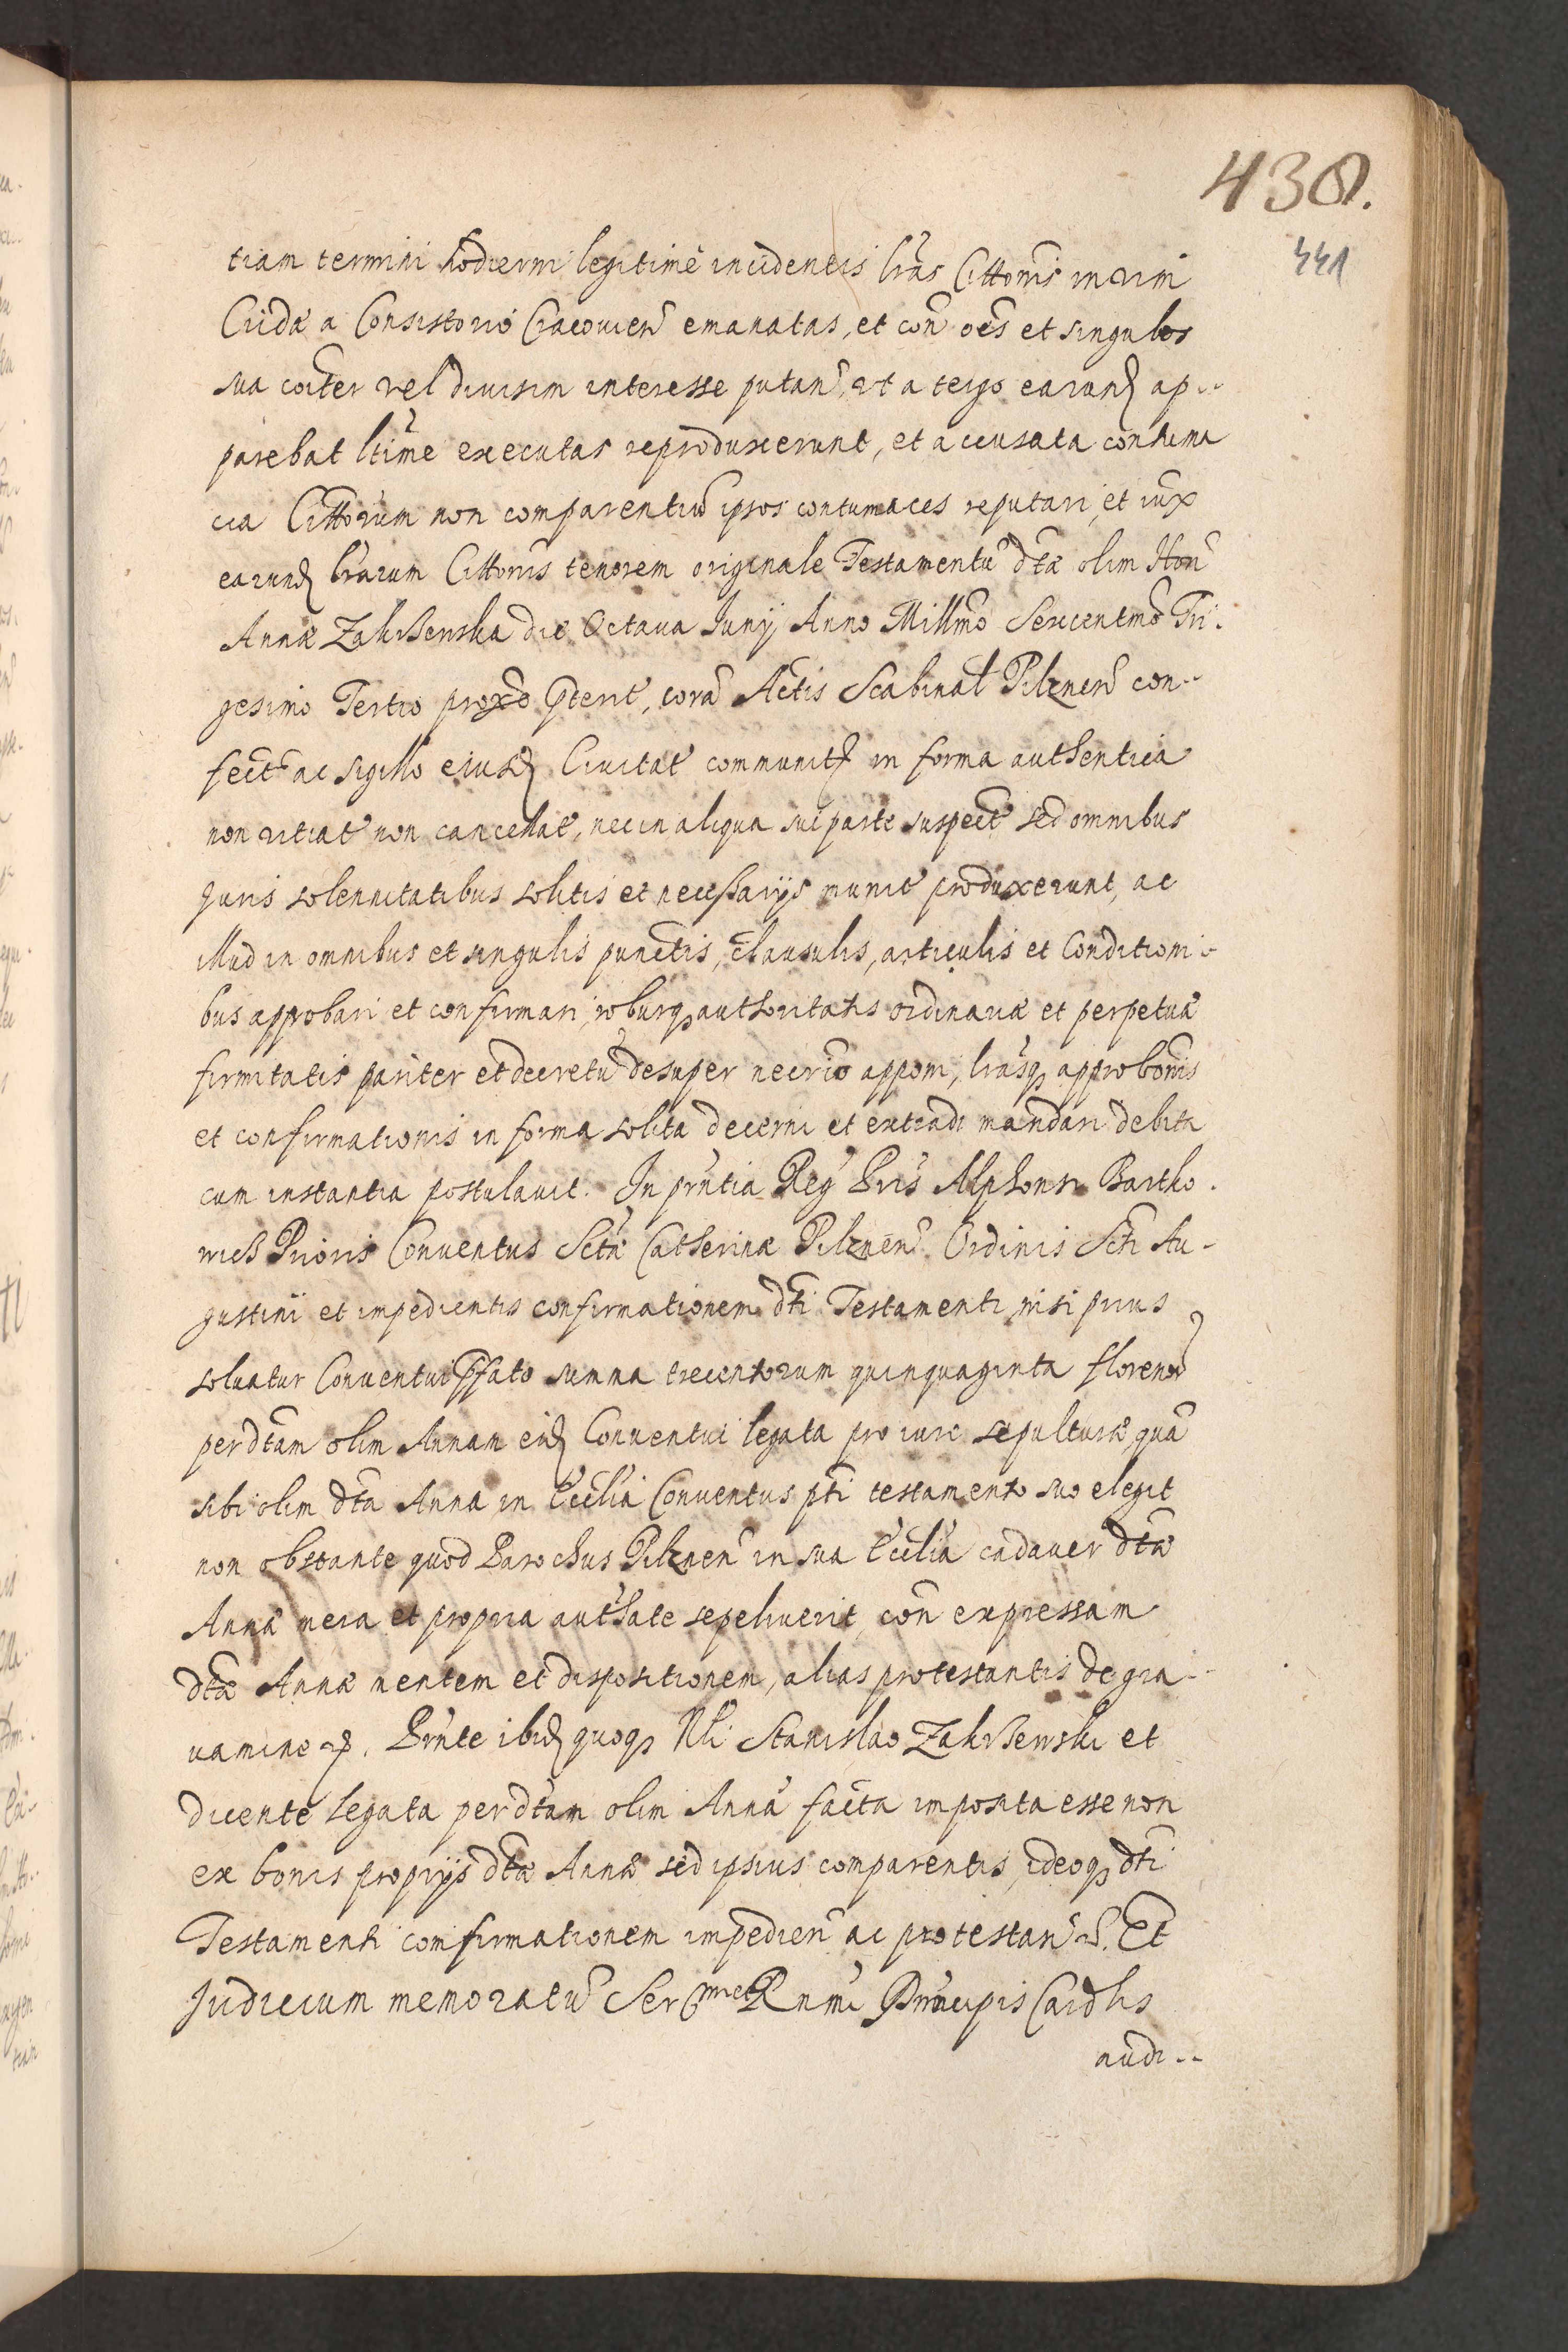 438.
441
tiam termini hodierni legitimè incidentis lr̃as Citt̃onis in vim
Cridæ a Consistorio Cracouien̄ emanatas, et con̄ oẽs et singulos
sua coĩter vel diuisim interesse putan̄, vt a tergo earund̃ ap--
parebat ltĩme executas reproduxerunt, et accusata contuma
cia Citt̃orum non comparentiũ ipsos contumaces reputari, et iux̃
earund̃ lr̃arum Citt̃onis tenorem originale Testamentũ dt̃æ olim Hon̄
Annæ Zakrzenska die Octaua Junij Anno Millm̃o Sexcentm̃o Tri-
gesimo Tertio prox̃o p̃terit̃, corã Actis Scabinal̃ Pilznen̄ con--
fect̃ ac sigillo eiusd̃ Ciuitat̃ communit̃ in forma authentica
non vitiat̃ non cancellat̃, nec in aliqua sui parte suspect̃ sed omnibus
Juris solennitatibus solitis et necessarijs munit̃ produxerunt, ac
illud in omnibus et singulis punctis, clausulis, articulis et Conditioni-
bus approbari et confirmari, roburq3 authoritatis ordinariæ et perpetuæ
firmitatis pariter et decretũ desuper necr̃io apponi, lr̃asq3 approbõnis
et confirmationis in forma solita decerni et extradi mandari debita
cum instantia postulauit. In prñtia Rẽg Pr̃is Alphonsi Bartho-
wicz Prioris Conuentus Sctæ̃ Catherinæ Pilznen̄ Ordinis Sct̃i Au-
gustini et impedientis confirmationem dt̃i Testamenti, nisi prius
soluatur Conuentui p̃fato summa trecentorum quinquaginta florenor̃
per dt̃am olim Annam eid̃ Conuentui legata pro iure sepulturæ, quã
sibi olim dt̃a Anna in Eccl̃ia Conuentus p̃ti testamento suo elegit
non obstante quod Parochus Pilznen̄ in sua Eccl̃ia cadauer dt̃æ
Annæ mera et propria autht̃ate sepeliuerit, con̄ expressam
dt̃æ Annæ mentem et dispositionem, alias protestantis de gra--
uamine &. Prñte ibid̃ quoq3 Nli Stanislao Zakrzewski et
dicente legata per dt̃am olim Annã facta imposita esse non
ex bonis proprijs dt̃æ Annæ sed ipsius comparentis, ideoq3 dt̃i
Testamenti comfirmationem impedien̄ ac protestan̄ &. Et
Judicium memoratũ Ser[mi] et Rñmi Principis Cardlis
audi--